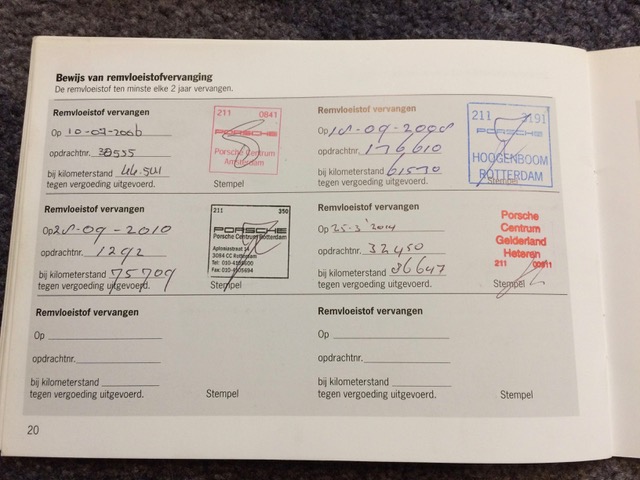 Bewijs van remvloeistofvervanging
De remvloeistof ten minste elke 2 jaar vervangen.
Remvloeistof vervangen
Op 10-07-2006
opdrachtnr. 38555
bij kilometerstand 46.541
tegen vergoeding uitgevoerd.
Stempel
211 0841
PORSCHE
Porsche Centrum
Amsterdam
Remvloeistof vervangen
Op 18-09-2008
opdrachtnr. 176610
bij kilometerstand 61570
tegen vergoeding uitgevoerd.
Stempel
211 3191
PORSCHE
HOOGENBOOM
ROTTERDAM
Remvloeistof vervangen
Op 28-09-2010
opdrachtnr. 1292
bij kilometerstand 75709
tegen vergoeding uitgevoerd.
Stempel
211 390
PORSCHE
Porsche Centrum Rotterdam
3084 CC Rotterdam
Remvloeistof vervangen
Op 25-3-2014
opdrachtnr. 32450
bij kilometerstand 86647
tegen vergoeding uitgevoerd.
Stempel
Porsche
Centrum
Gelderland
Heteren
211
Remvloeistof vervangen
Op
opdrachtnr.
bij kilometerstand
tegen vergoeding uitgevoerd.
Stempel
Remvloeistof vervangen
Op
opdrachtnr.
bij kilometerstand
tegen vergoeding uitgevoerd.
Stempel
20